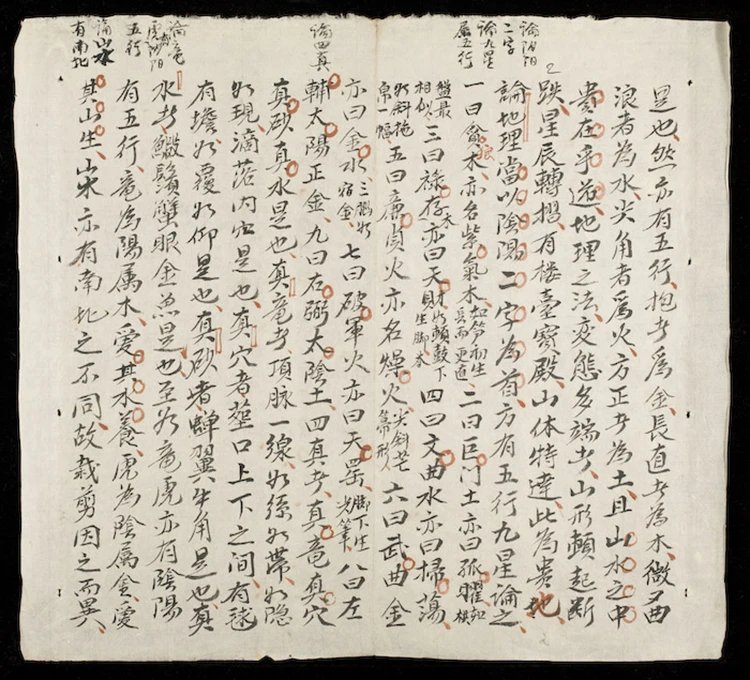 論陰陽
二字
論九星
屬五行
論四真
論竜
虎陰陽
五行
論山水
有南北
是也然亦有五行抱者為金長直者為木微曲
浪者為水尖角者為火方正者為土且山水之中
貴在乎地理之法变態多端者山形起断
跌星辰轉摺有楼臺寶殿山体特達此為贵地
論地理當以陰陽二字為首方有五行九星論之
一曰貪狼木亦名紫氣木如笋初生员而更直二曰巨门土亦曰孤曜如
盤最相似三曰祿存木亦曰天財如鼓下生脚木四曰文曲水亦曰掃蕩
如斜拖帛一幅五曰廉貞火亦名燥火尖斜芒六曰武曲金
亦曰金水三腦如宿金七曰破軍火亦曰天罡脚下生光筆八曰左
輔太陽正金九曰右弼太陰土四真者真竜真穴
真砂真水是也真竜者頂脉一線如絲如帶如隐
如現滴落内是也真穴者塟口上下之间有毬
有擔如覆如仰是也真砂者蟬翼牛角是也真
水者鬚蟹眼金魚是也至如竜虎亦有陰陽
有五行竜為陽属木愛其水養虎為陰属金愛
其山生山水亦有南北之不同故裁剪因之而異